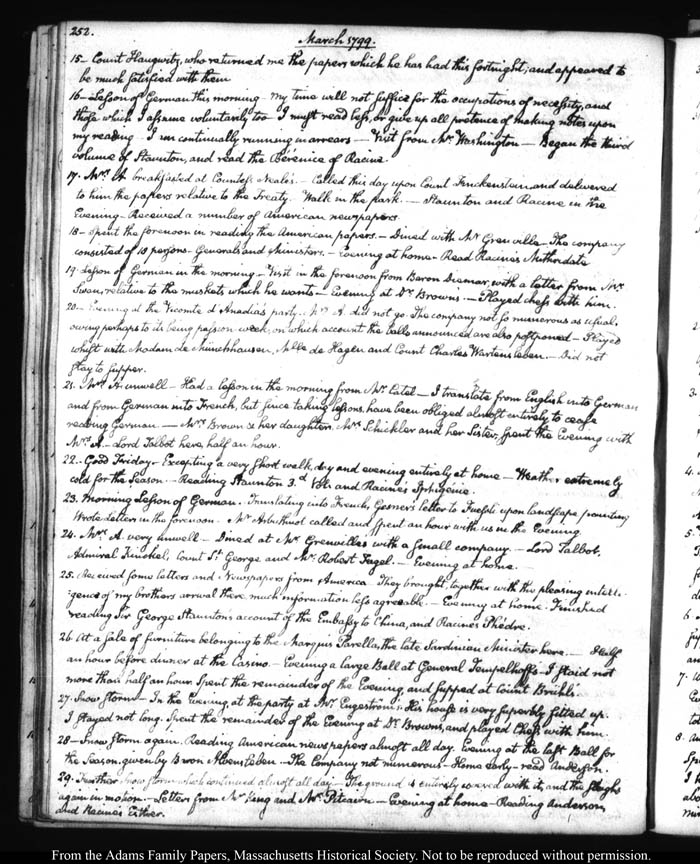 252.
March 1799.
15- Count Haugwitz, who returned me the papers which he has had this fortnight; and appeared to
be much satisfied with them
16- Lesson of German this morning - my time will not suffice for the occupations of necessity, and
those which I assume voluntarily too - I must read less, or give up all pretence of making notes upon
my reading - I am continually running in arrears - Visit from Mr Washington - Began the third
volume of Staunton, and read the Bérénice of Racine.
17. Mrs A. breakfasted at Countess Neale's - Called this day upon Count Finckenstein and delivered
to him the papers relative to the Treaty. Walk in the park. - Staunton and Racine in the
Evening - Received a number of American newspapers.
18- Spent the forenoon in reading the American papers. - Dined with Mr Grenville - The company
consisted of 10 persons - Generals and Ministers. - Evening at home - Read Racine's Mithridate
19. Lesson of German in the morning. - Visit in the forenoon from Baron Diemar, with a letter from Mr
Swan, relative to the muskets which he wants - Evening at Dr Browns. - Played chess with him.
20- Evening at the Vicomte d'Anadia's party. Mrs A. did not go. The company not so numerous as usual,
owing perhaps to its being passion-week, on which account the balls announced are also postponed - Played
whist with Madam de Münchhausen, Mlle de Hagen and Count Charles Wartensleben. - Did not
stay to supper.
21. Mrs A. unwell - Had a lesson in the morning from Mr Catel - I translate from English into German
and from German into French, but since taking lessons, have been obliged almost entirely to cease
reading German. - Mrs Brown & her daughters, Mrs Schickler and her Sister, spent the Evening with
Mrs A - Lord Talbot here, half an hour.
22.. Good Friday - Excepting a very short walk, day and evening entirely at home - Weather extremely
cold for the Season. - Reading Staunton 3.d Vol: and Racine's Iphigénie.
23. Morning Lesson of German. Translating into French, Gesner's letter to Fuessli upon landscape painting
Wrote Letters in the forenoon - Mr Arbuthnot called and spent an hour with us in the Evening
24. Mrs A. very unwell - Dined at Mr Grenville's with a small company - Lord Talbot,
Admiral Kinckel, Count St George and Mr Robert Fagel. - Evening at home.
25. Received some letters and Newspapers from America They brought, together with the pleasing intelli-
gence of my brothers arrival there, much information less agreeable - Evening at home. Finished
reading Sir George Staunton's account of the Embassy to China, and Racine's Phèdre.
26. At a Sale of furniture belonging to the Marquis Parella, the late Sardinian Minister here. - Half
an hour before dinner at the Casino. - Evening a large Ball at General Tempelhoff's. I staid not
more than half an hour. Spent the remainder of the Evening, and supped at Count Brühl's.
27. Snow Storm - In the Evening, at the party at Mr Engestrom's. His house is very superbly fitted up.
I stayed not long. Spent the remainder of the Evening at Dr Browns, and played Chess with him.
28 - Snow storm again. Reading American newspapers almost all day. Evening at the last Ball for
the Season, given by Baron Alvensleben - The Company not numerous - Home early - read Anderson.
29. Further snow storm which continued almost all day - The ground is entirely covered with it, and the sleighs
again in motion. - Letters from Mr King and Mr Pitcairn - Evening at home - Reading Anderson,
and Racine's Esther.
From the Adams Family Papers, Massachusetts Historical Society. Not to be reproduced without permission.